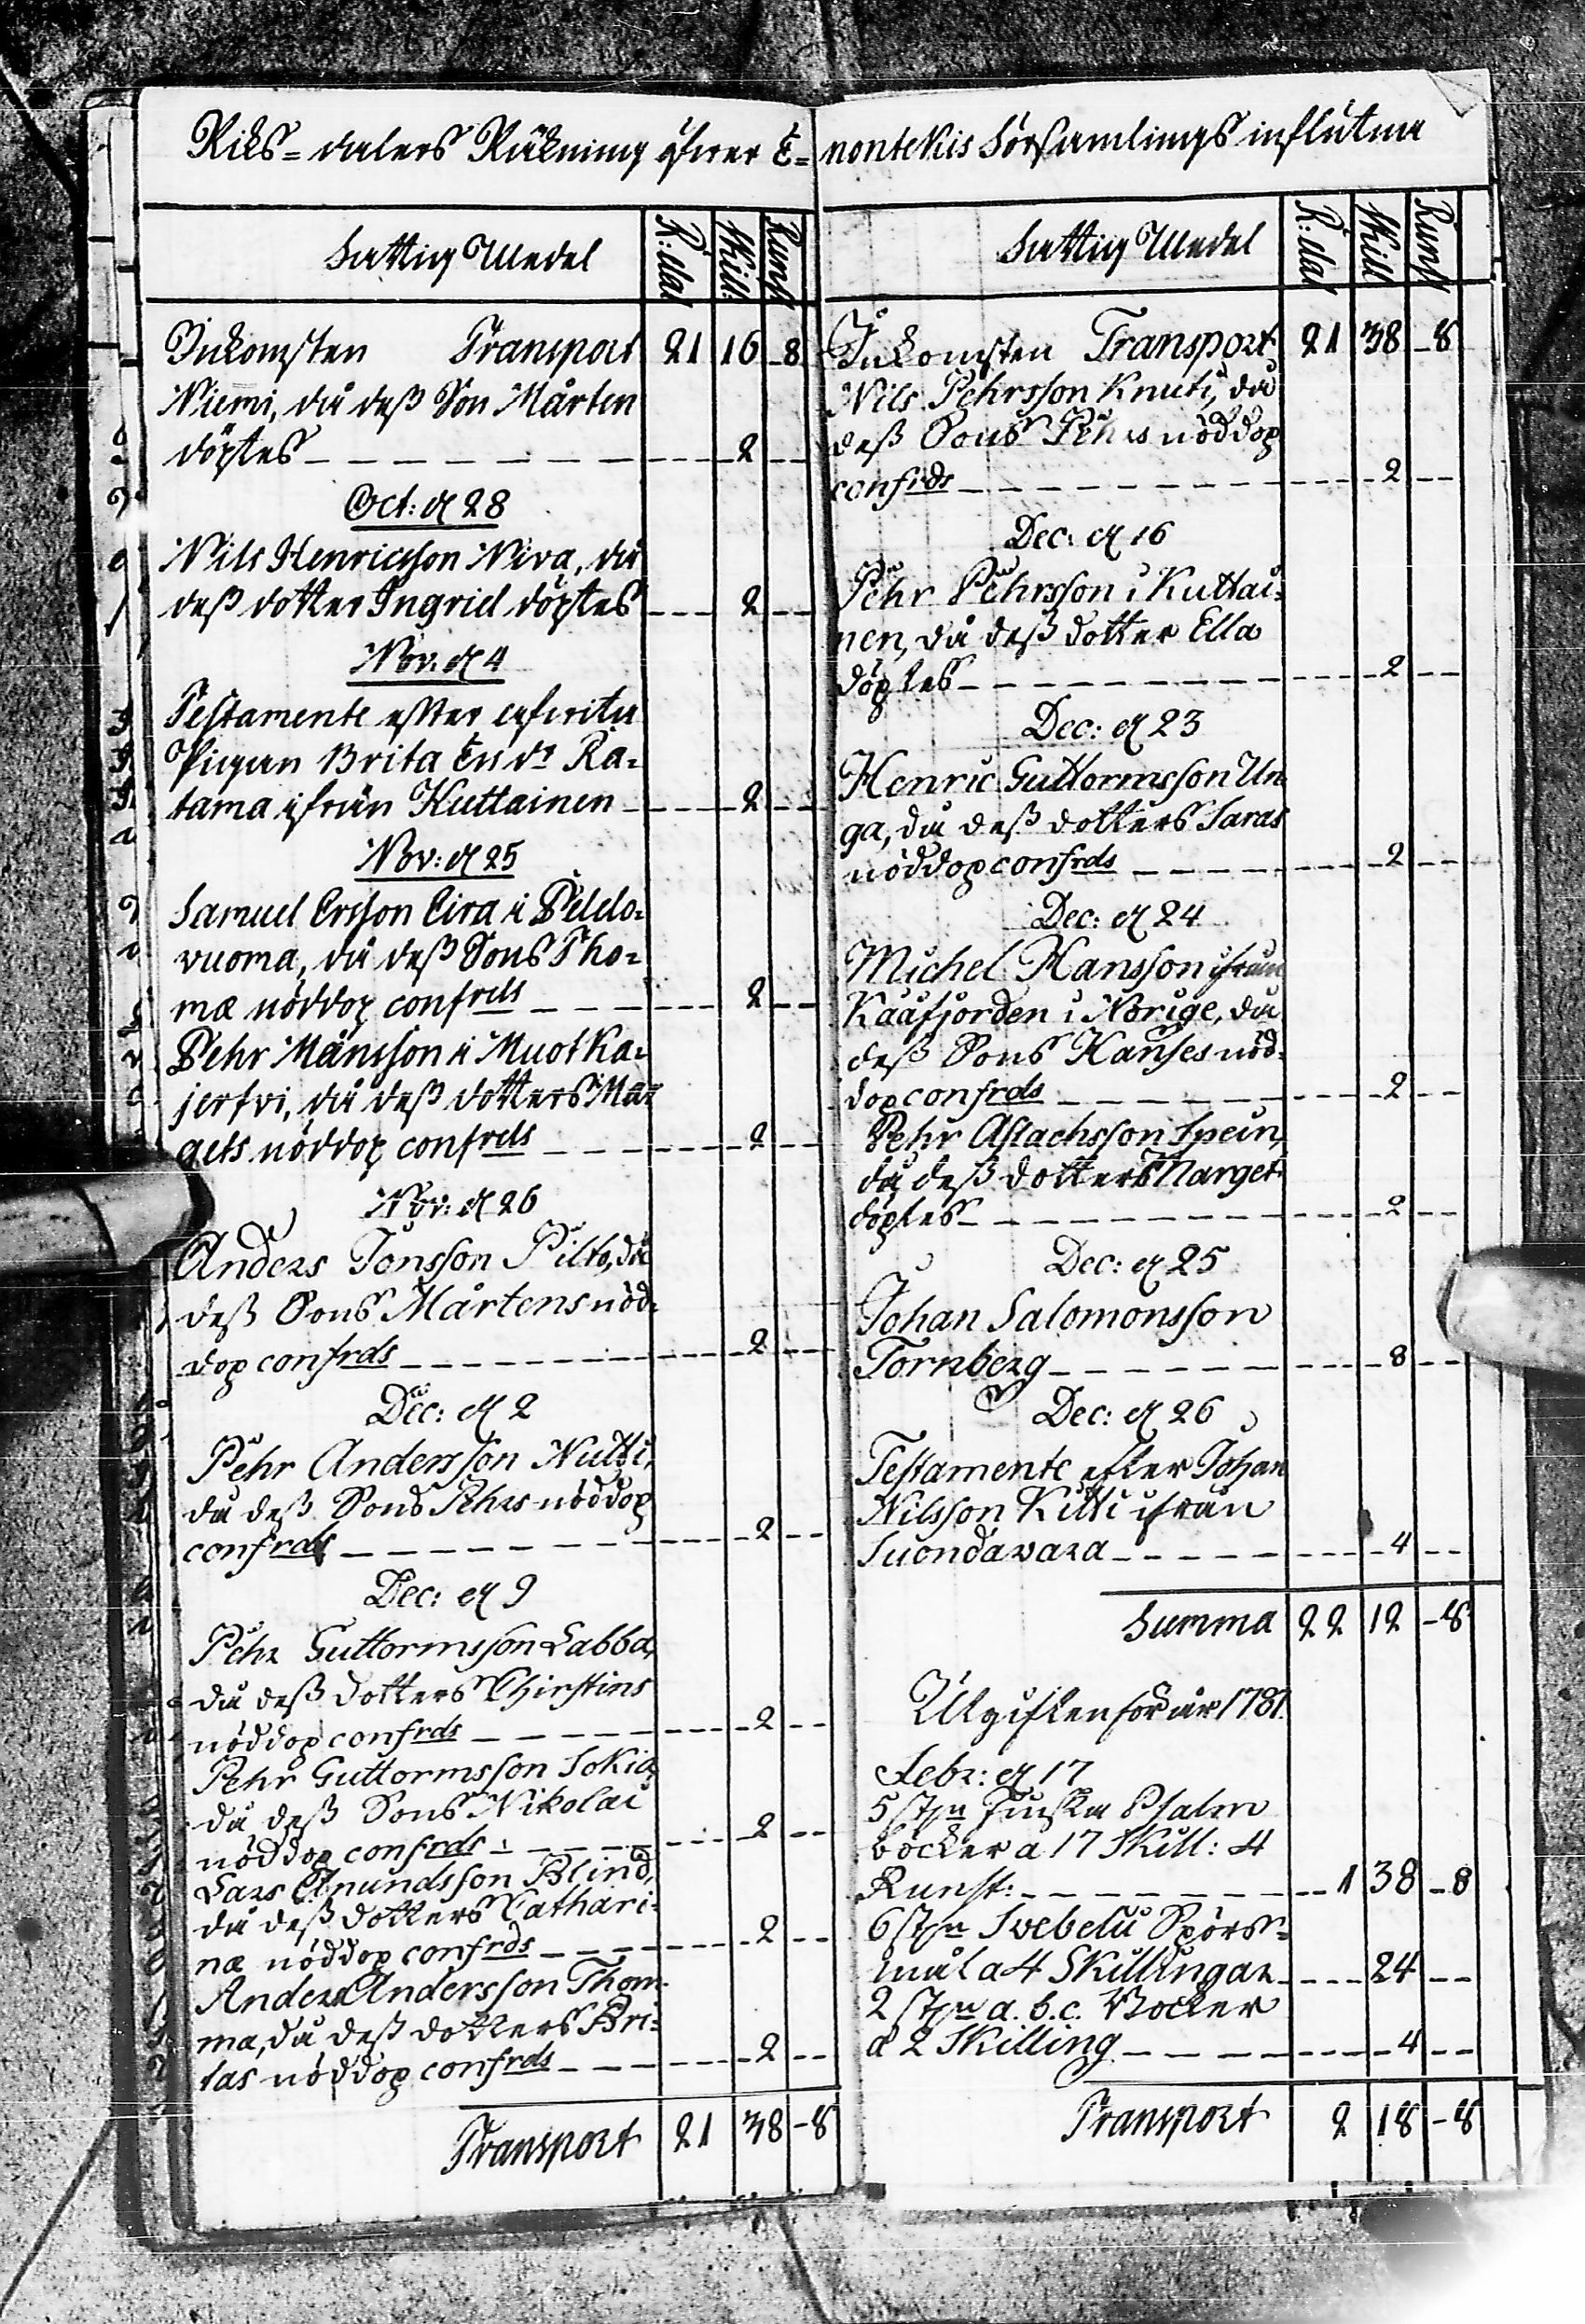 Riks-dalers Räkning öfwer E-nontekis Församlings influtna
Fattig Medel R:dal Skill: Runst
Inkomsten Transport 21 16 -8
Niemi, då deß Son Mårten
döptes 2
Oct: d 28
Nils Henricsson Niva, då
deß dotter Ingrid döptes 2
Nov: d 4
Testamente efter afwitn
Pigan Brita Ersdr Ra-
tama ifrån Kuttainen 2
Nov: d 25
Samuel Ersson Eira i Peldo-
vuoma, då deß Sons Tho-
mæ nöddop confrds 2
Pehr Månsson i Muotka-
jerfvi, då deß dotters Mar-
gets nöddop confrds 2
Nov: d 26
Anders Jonsson Pilto, då
deß Sons Mårtens nöd-
dop confrds 2
Dec: d 2
Pehr Andersson Nutti,
då deß Sons Pehrs nöddop
confrds 2
Dec: d 9
Pehr Guttormsson Labba,
då deß dotters Chirstins
nöddop confrds 2
Pehr Guttormsson Sokia,
då deß Sons Nikolai
nöddop confrds 2
Lars Amundsson Blind,
då deß dotters Cathari-
næ nöddop confrds 2
Anders Andersson Thom-
ma, då deß dotters Bri-
tas nöddop confrds 2
Transport 21 38 -8
Fattig Medel R:dal Skill Runst
Inkomsten Transport 21 38 -8
Nils Pehrsson Knuti, då
deß Sons Pehrs nöddop
confrds 2
Dec: d 16
Pehr Pehrsson i Kuttai-
nen, då deß dotter Ella
döptes 2
Dec: d 23
Henric Guttormsson Un
ga, då deß dotters Saras
nöddop confrds 2
Dec: d 24
Michel Hansson ifrån
Kååfjorden i Norige, då
deß Sons Hanses nöd-
dop confrds 2
Pehr Aslachsson Spein,
då deß dotters Marget
döptes 2
Dec: d 25
Johan Salomonsson
Tornberg 8
Dec: d 26
Testamente efter Johan
Nilsson Kitti ifrån
Suondavara 4
Summa 22 12 -8
Utgiften för år 1781
Febr: d 17
5 st:n Finska Psalm
böcker a 17 Skill: 4
Runst: 1 38 -8
6 st:n Svebelii Spörs-
mål a 4 Skillingar 24
2 st:n a. b. c. Böcker
a 2 Skilling 4
Transport 2 18 -8